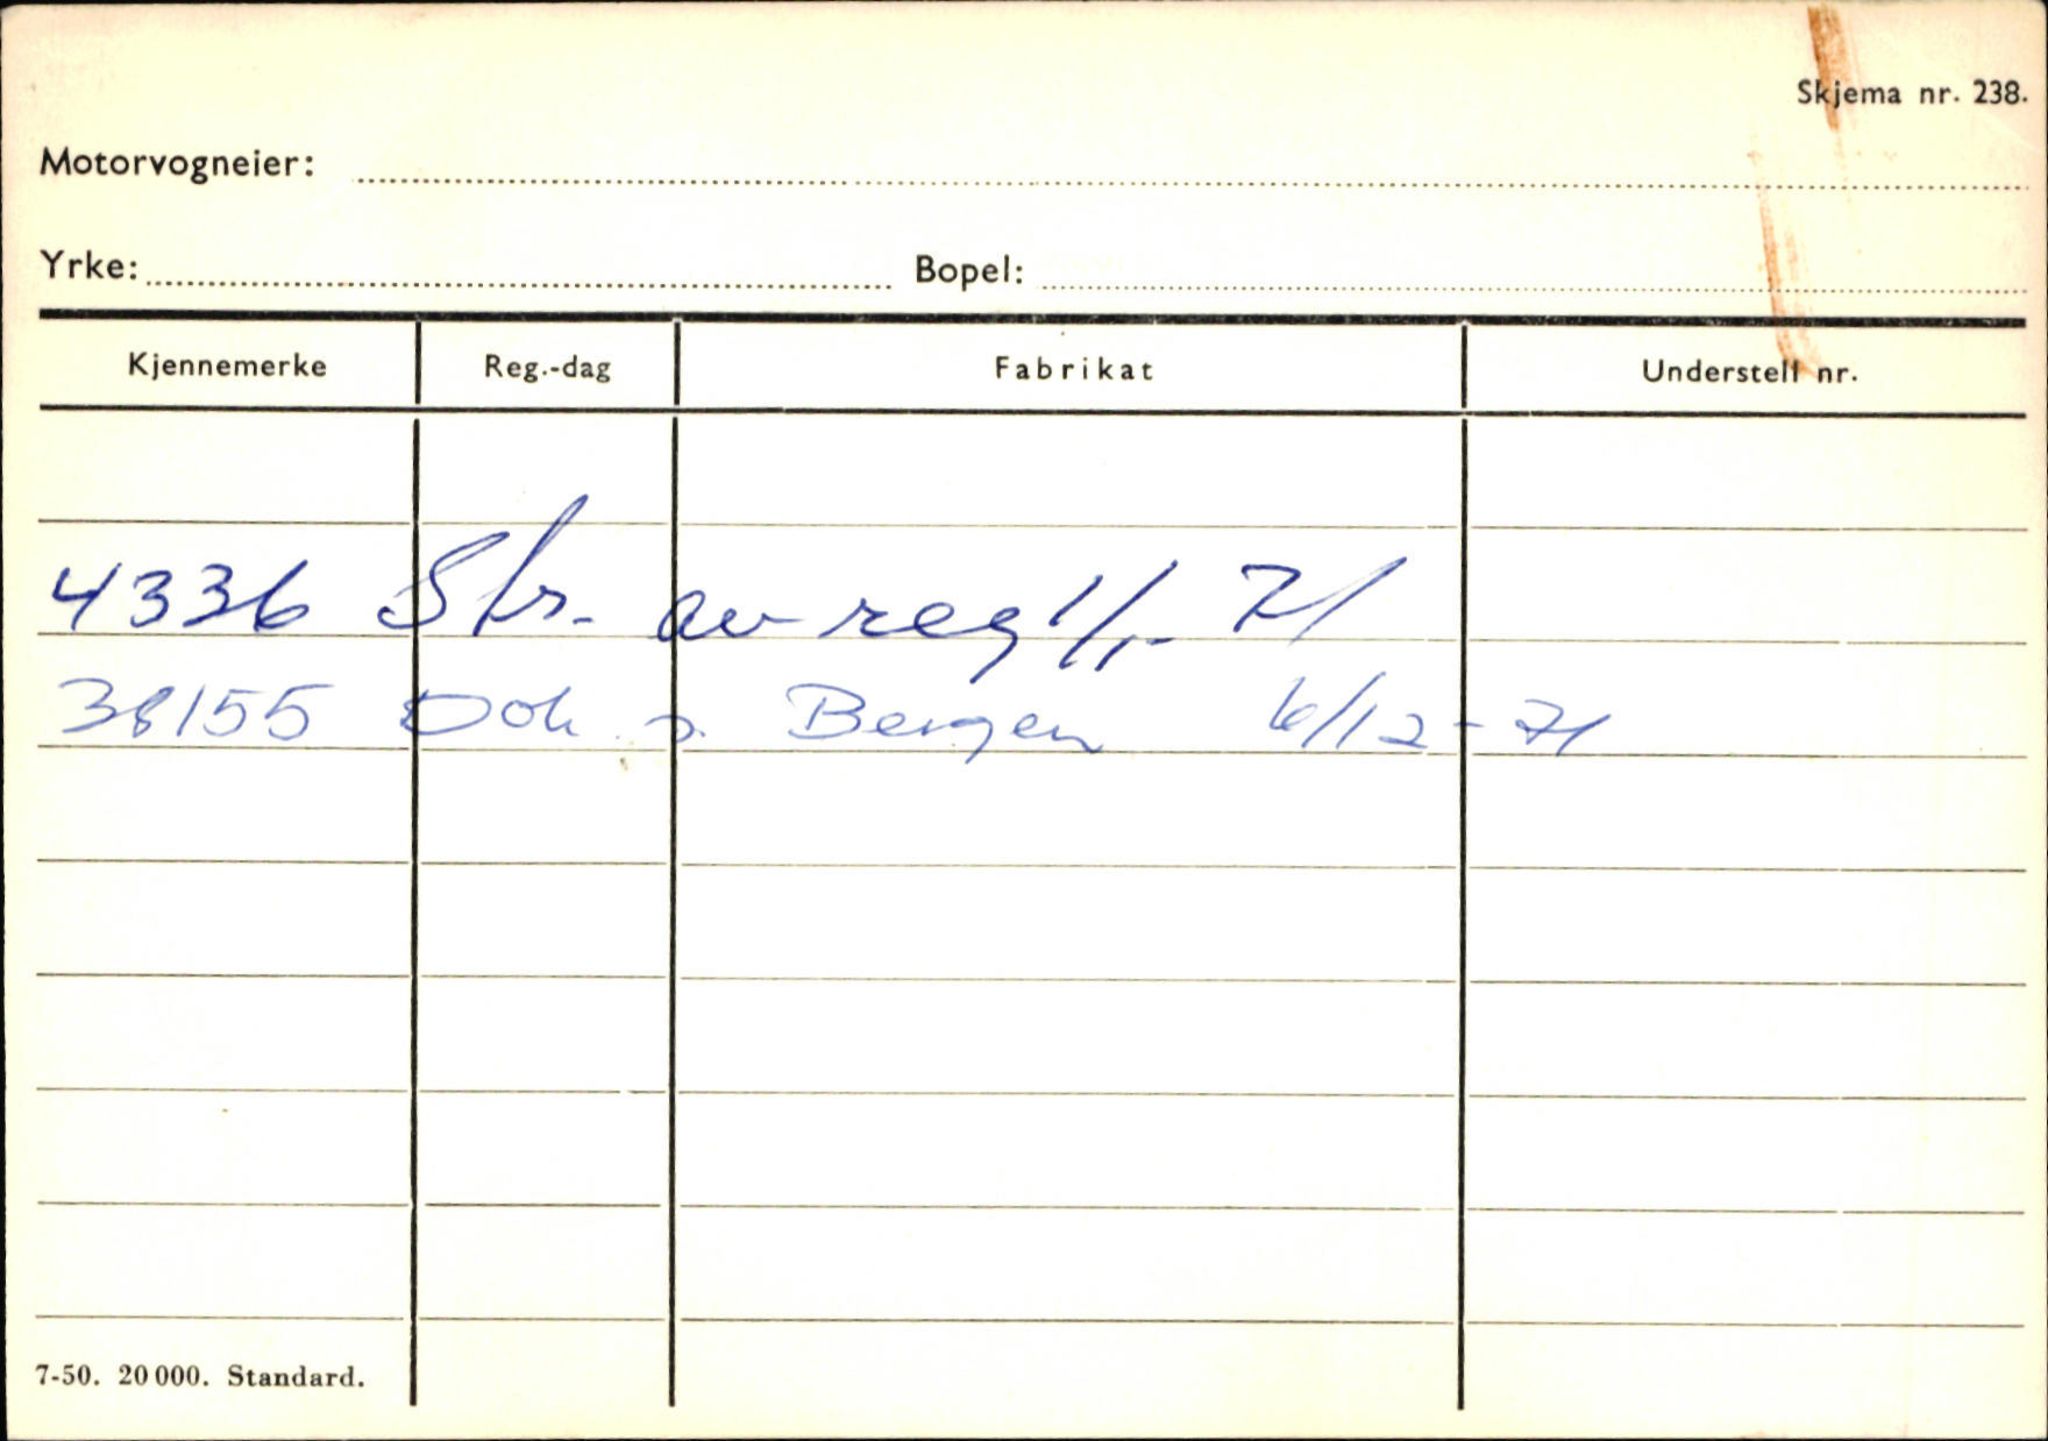 Skjema nr. 238.
Motorvogneier:
Yrke: Bopel:
Kjennemerke Reg.-dag Fabrikat Understell nr.
4336 Str. av reg 1/1- 71
38155 Dok s. Bergen 6/12-71
7-50. 20 000. Standard.